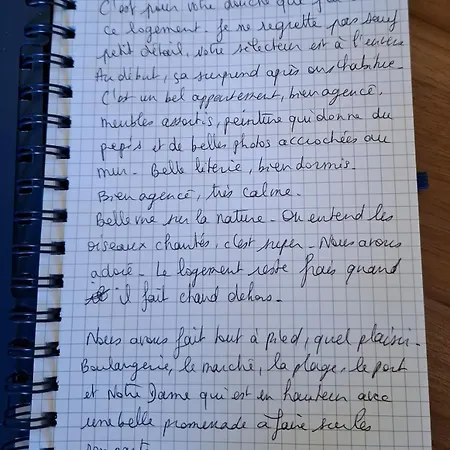 C'est pour votre douche que j'ai
ce logement. Je ne regrette pas sauf
petit détail, votre sélecteur est à l'envers
Au début, ça surprend après on s'habitue.
C'est un bel appartement, bien agencé,
meubles assortis, peinture qui donne du
peps et de belles photos accrochées au
mur. Belle literie, bien dormis.
Bien agencé, très calme.
Belle vue sur la nature. On entend les
oiseaux chantés, c'est super. Nous avons
adoré. Le logement reste frais quand
il fait chaud dehors.
Nous avons fait tout à pied, quel plaisir.
Boulangerie, le marché, la plage, le port
et Notre Dame qui est en hauteur avec
une belle promenade à faire sur les